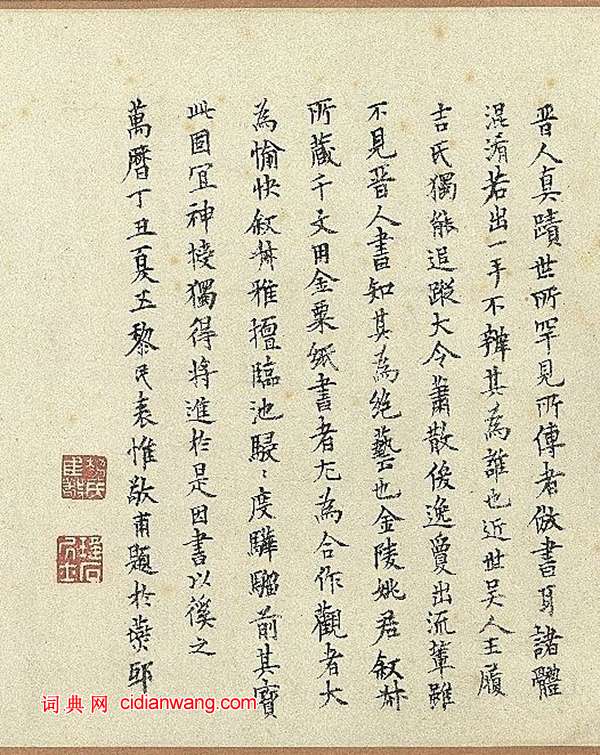 晋人真蹟世所罕見所傳者倣書耳諸體
混淆若出一手不辨其為誰也近世吴人王履
吉氏獨能追蹤大令蕭散俊逸敻出流輩雖
不見晋人書知其為絶藝也金陵姚君叙
所藏千文用金粟紙書者尤為合作觀者大
為愉快叙雅擅臨池駸〻度驊騮前其寳
此固宜神授獨得将進於是因書以徯之
萬曆丁丑夏五黎民表惟敬甫題於燕邸
词典网 cidianwang.com